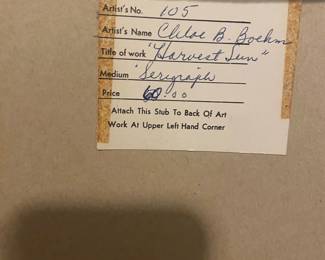 Artist's No. 105
Artist's Name Chloe B. Boehm
Title of work "Harvest Sun"
Medium Serigraph
Price 60.00
Attach This Stub To Back Of Art
Work At Upper Left Hand Corner